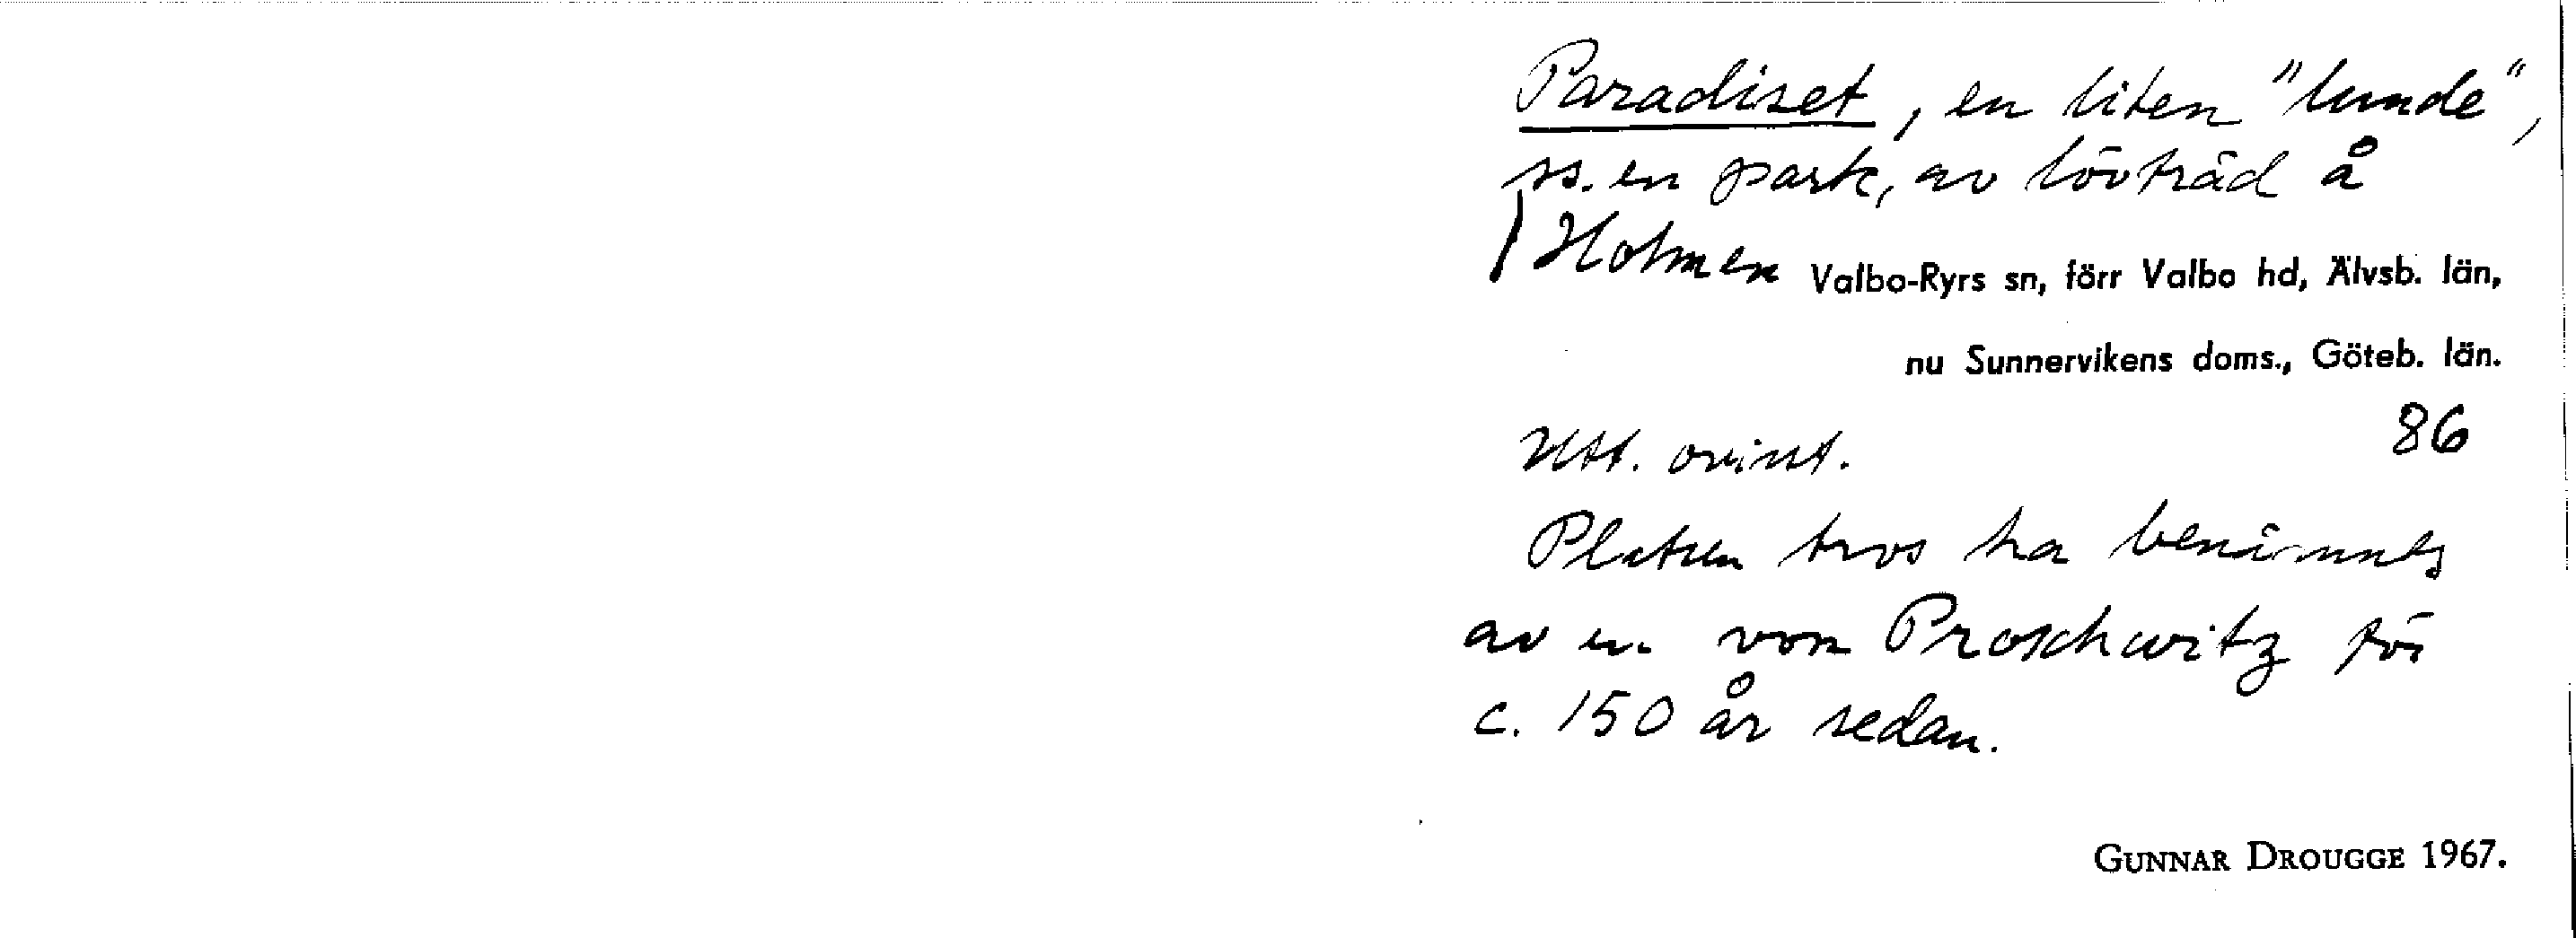 Paradiset, en liten "lunde",
ss. en park, av lövträd å
Holmen Valbo-Ryrs sn, förr Valbo hd, Älvsb. län,
nu Sunnervikens doms., Göteb. län.
Utt. ovisst. 86
Platsen tros ha benämnts
av en von Proschwitz för
c. 150 år sedan.
GUNNAR DROUGGE 1967.